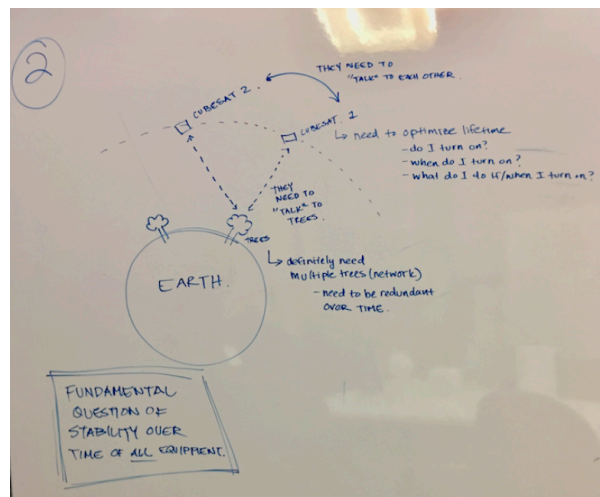 2
THEY NEED TO
"TALK" TO EACH OTHER.
CUBESAT 2.
CUBESAT 1
need to optimize lifetime
- do I turn on?
- when do I turn on?
- what do I do if/when I turn on?
THEY
NEED TO
"TALK" TO
TREES.
TREES
definitely need
multiple trees (network)
- need to be redundant
OVER TIME.
EARTH.
FUNDAMENTAL
QUESTION OF
STABILITY OVER
TIME OF ALL EQUIPMENT.